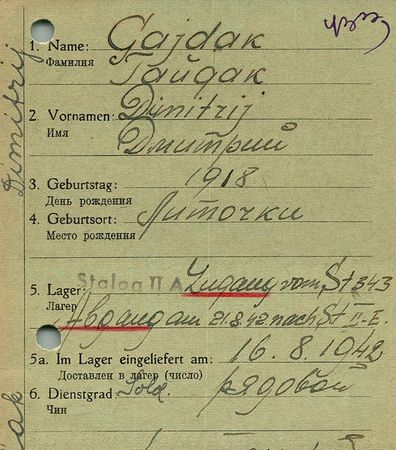 1. Name: Gajdak
Фамилия Гайдак
2. Vornamen: Dimitrij
Имя Дмитрий
3. Geburtstag: 1918
День рождения
4. Geburtsort: Литочки
Место рождения
Stalag II A
5. Lager: Zugang vom St 343
Лагерь
Abgang am 21.8.42 nach St II-E.
5a. Im Lager eingeliefert am: 16.8.1942
Доставлен в лагер (число)
6. Dienstgrad: Sold. рядовой
Чин
Dimitrij